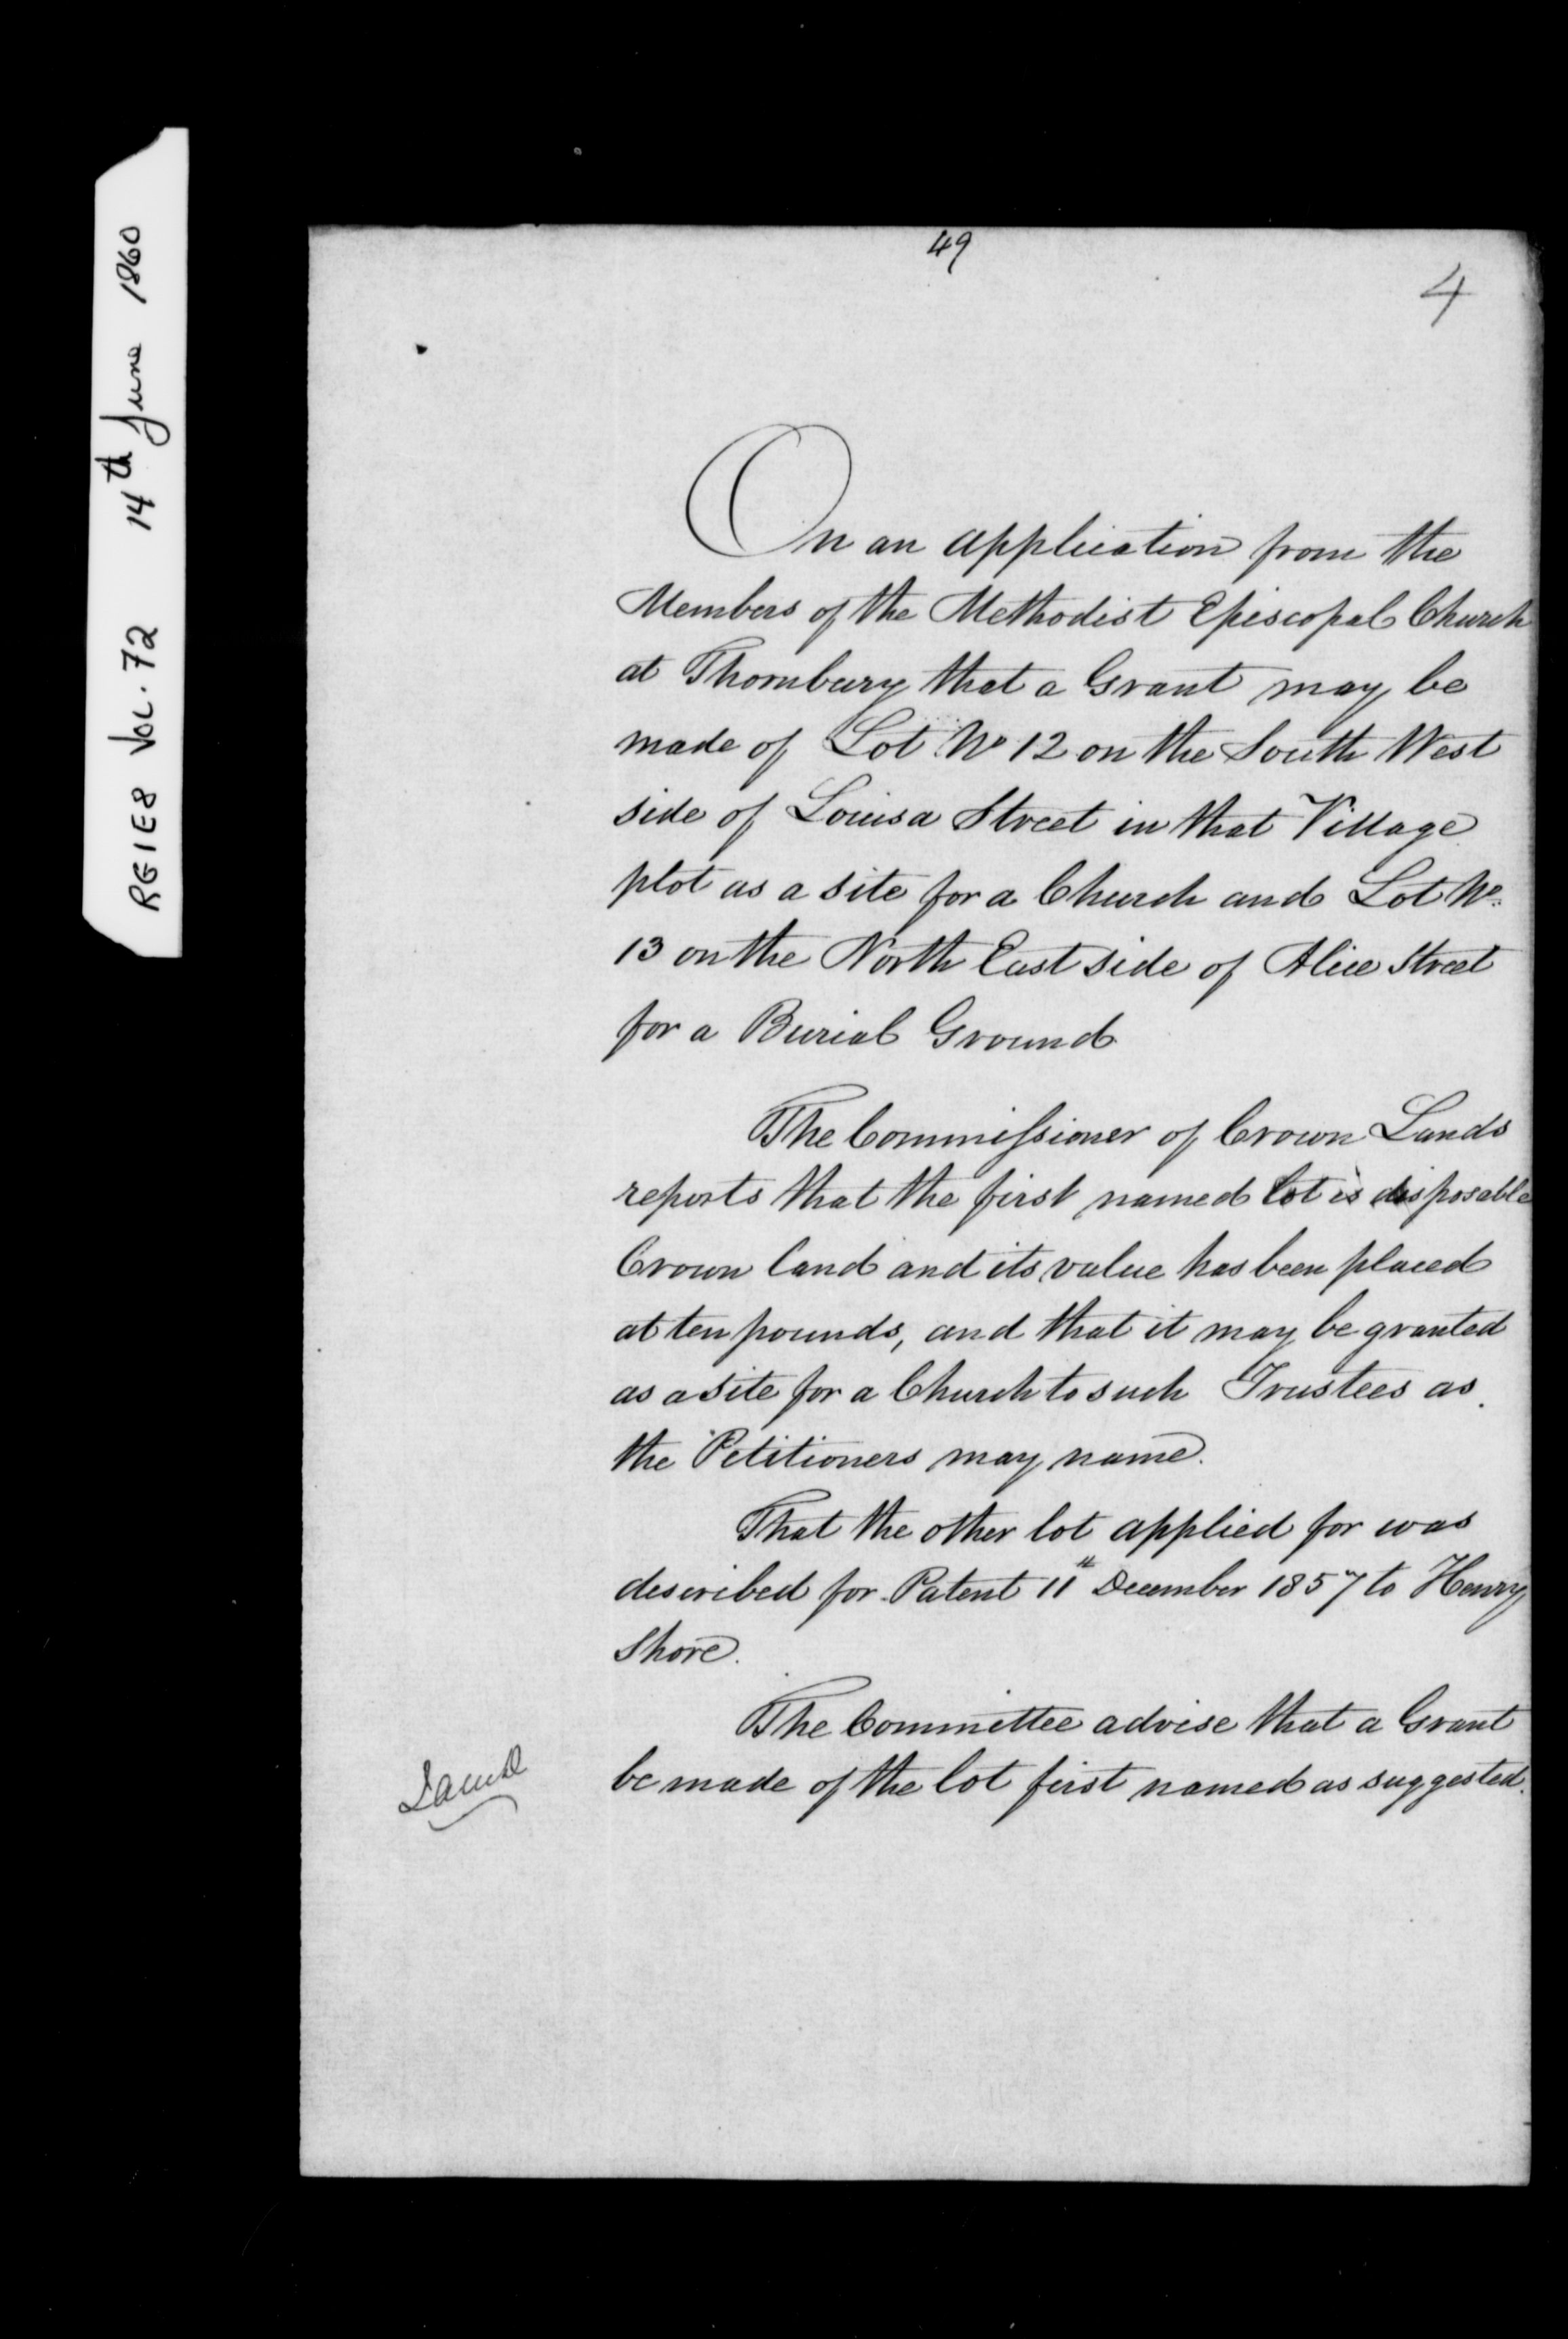 RG1E8 VOL. 72 14th June 1860
49
4
On an application from the
Members of the Methodist Episcopal Church
at Thornbury that a Grant may be
made of Lot No 12 on the South West
side of Louisa Street in that Village
plot as a site for a Church and Lot No.
13 on the North East side of Alice Street
for a Burial Ground
The Commissioner of Crown Lands
reports that the first named lot is disposable
Crown land and its value has been placed
at ten pounds, and that it may be granted
as a site for a Church to such Trustees as
the Petitioners may name.
That the other lot applied for was
described for Patent 11th December 1857 to Henry
Shore.
The Committee advise that a Grant
be made of the lot first named as suggested.